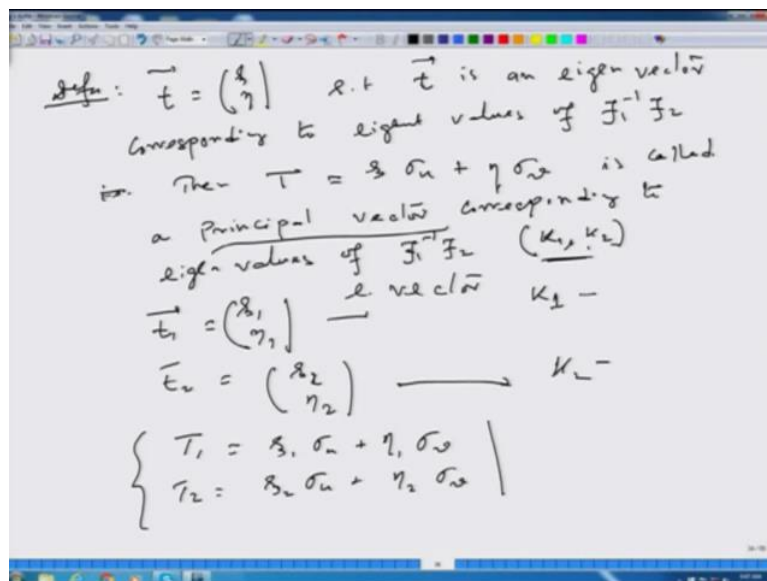 Defn : t⃗ = (ξ η) s.t t⃗ is an eigen vector
Corresponding to eigent values of F₁⁻¹ F₂
Then T⃗ = ξ σᵤ + η σᵥ is called
a Principal vector corresponding to
eigen values of F₁⁻¹ F₂ (K₁, K₂)
t⃗₁ = (ξ₁ η₁) — e. vector K₁ —
t₂ = (ξ₂ η₂) — K₂ —
T₁ = ξ₁ σᵤ + η₁ σᵥ
T₂ = ξ₂ σᵤ + η₂ σᵥ